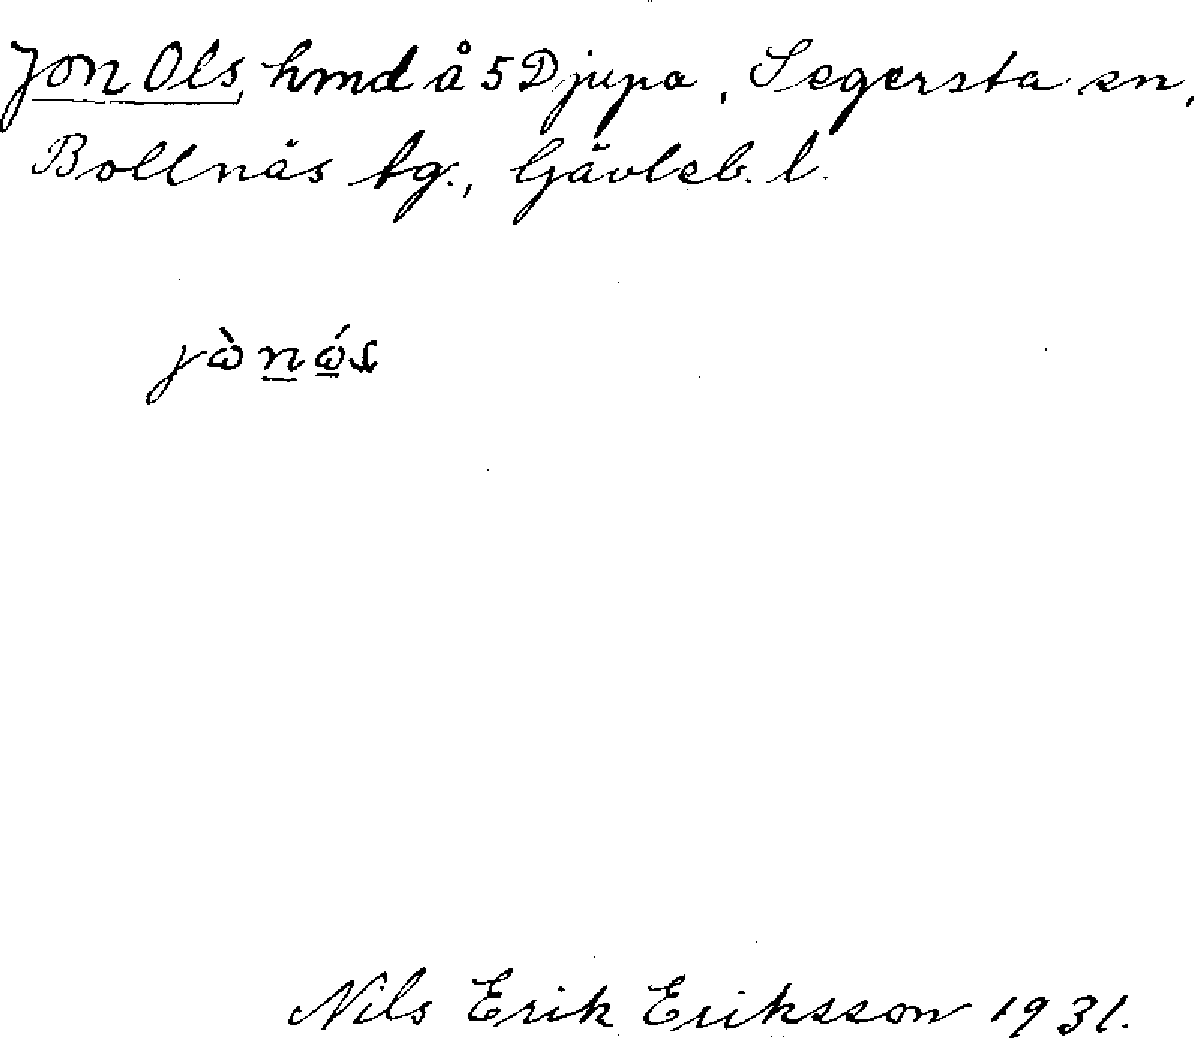 Jon Ols, hmd å 5 Djupa, Segersta sn,
Bollnäs tg., Gävleb. l.
jὼn̲ώ̲s
Nils Erik Eriksson 1931.